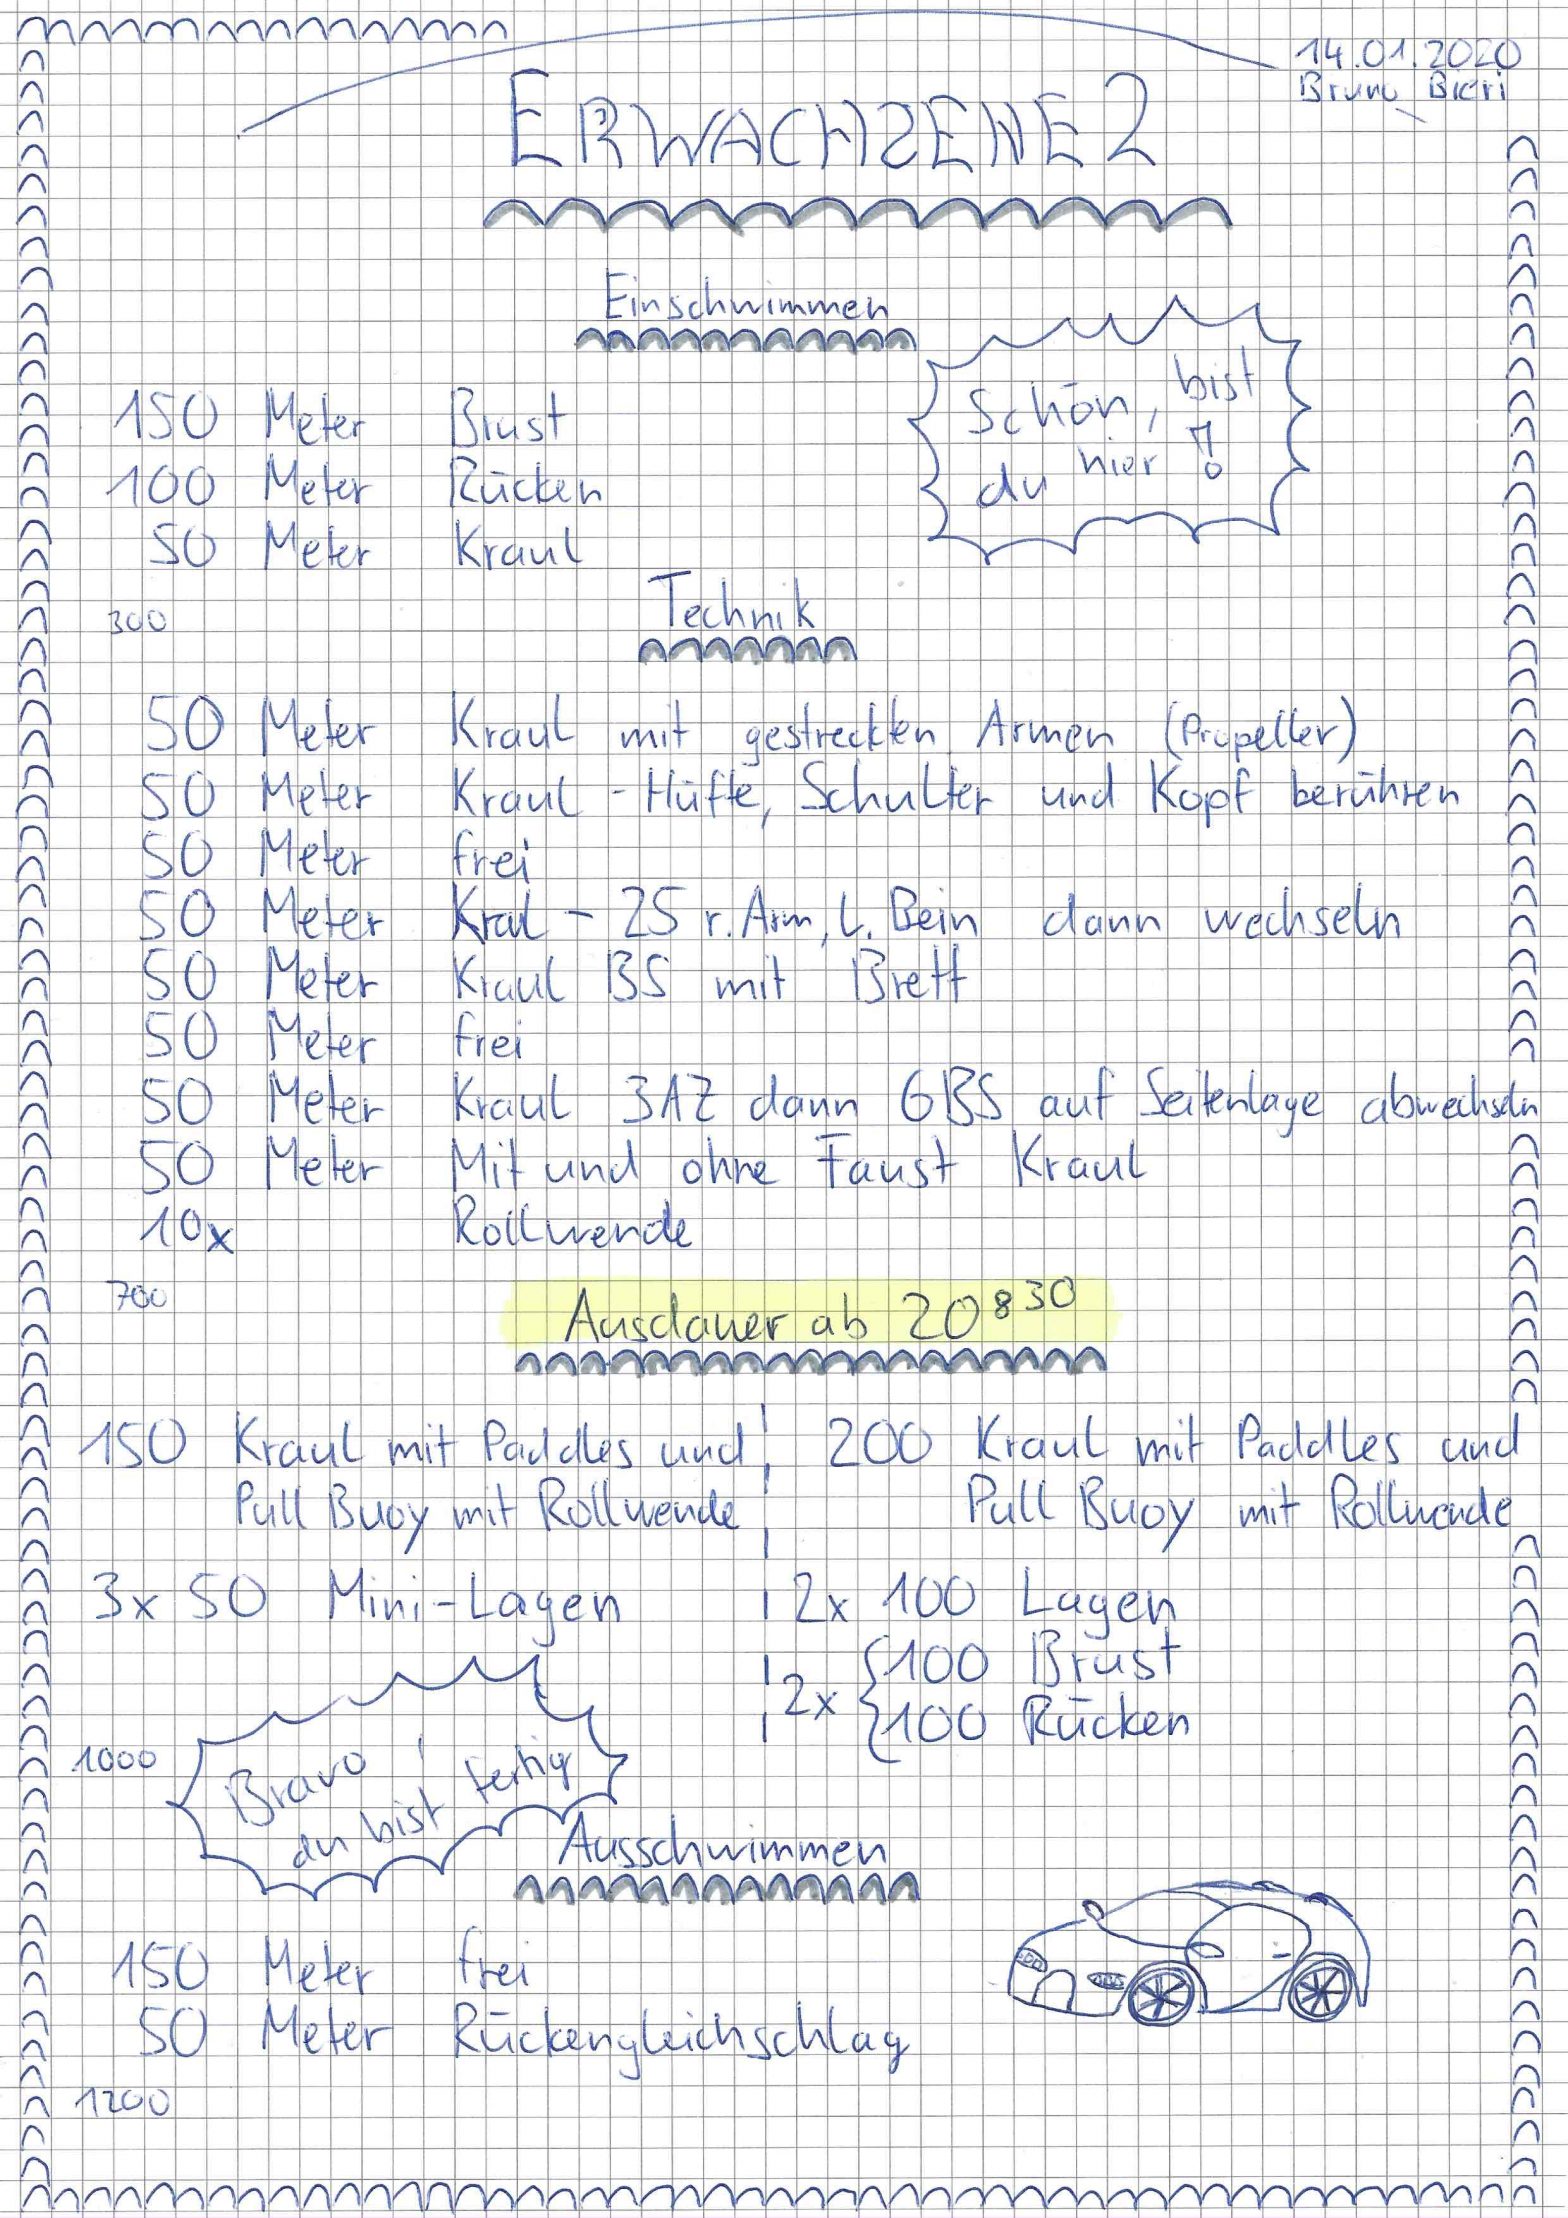 14.01.2020
Bruno Bieri
ERWACHSENE 2
Einschwimmen
Schön, bist
du hier!
150 Meter Brust
100 Meter Rücken
50 Meter Kraul
300
Technik
50 Meter Kraul mit gestreckten Armen (Propeller)
50 Meter Kraul - Hüfte, Schulter und Kopf berühren
50 Meter frei
50 Meter Kraul - 25 r. Arm, L. Bein dann wechseln
50 Meter Kraul BS mit Brett
50 Meter frei
50 Meter Kraul 3AZ dann 6BS auf Seitenlage abwechseln
50 Meter Mit und ohne Faust Kraul
10x Rollwende
700
Ausdauer ab 20:30
150 Kraul mit Paddles und
Pull Buoy mit Rollwende
3x 50 Mini-Lagen
200 Kraul mit Paddles und
Pull Buoy mit Rollwende
2x 100 Lagen
2x { 100 Brust
100 Rücken
1000
Bravo!
du bist fertig
Ausschwimmen
150 Meter frei
50 Meter Rückengleichschlag
1200